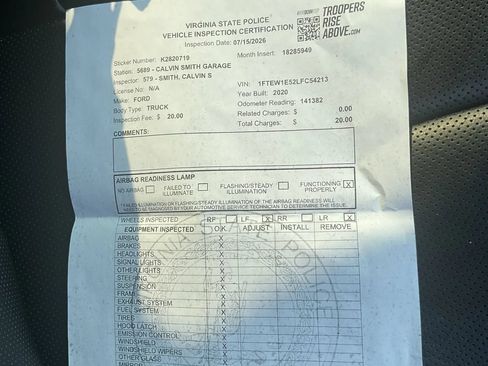 VIRGINIA STATE POLICE
VEHICLE INSPECTION CERTIFICATION
Inspection Date: 07/15/2026
TROOPERS
RISE
ABOVE.COM
Sticker Number: K2820719
Month Insert: 18285949
Station: 5689 - CALVIN SMITH GARAGE
Inspector: 579 - SMITH, CALVIN S
License No: N/A
VIN: 1FTEW1E52LFC54213
Make: FORD
Year Built: 2020
Body Type: TRUCK
Odometer Reading: 141382
Inspection Fee: $ 20.00
Related Charges: $ 0.00
Total Charges: $ 20.00
COMMENTS:
AIRBAG READINESS LAMP
NO AIRBAG
FAILED TO ILLUMINATE
FLASHING/STEADY ILLUMINATION
FUNCTIONING PROPERLY X
* FAILED ILLUMINATION OR FLASHING/STEADY ILLUMINATION OF THE AIRBAG READINESS
WILL NEED TO BE DIAGNOSED BY YOUR AUTOMOTIVE SERVICE TECHNICIAN TO DETERMINE THE ISSUE.
WHEELS INSPECTED RF LF X RR LR X
EQUIPMENT INSPECTED O.K. ADJUST INSTALL REMOVE
AIRBAG X
BRAKES X
HEADLIGHTS X
SIGNAL LIGHTS X
OTHER LIGHTS X
STEERING X
SUSPENSION X
FRAME X
EXHAUST SYSTEM X
FUEL SYSTEM X
TIRES X
HOOD LATCH X
EMISSION CONTROL X
WINDSHIELD X
WINDSHIELD WIPERS X
OTHER GLASS X